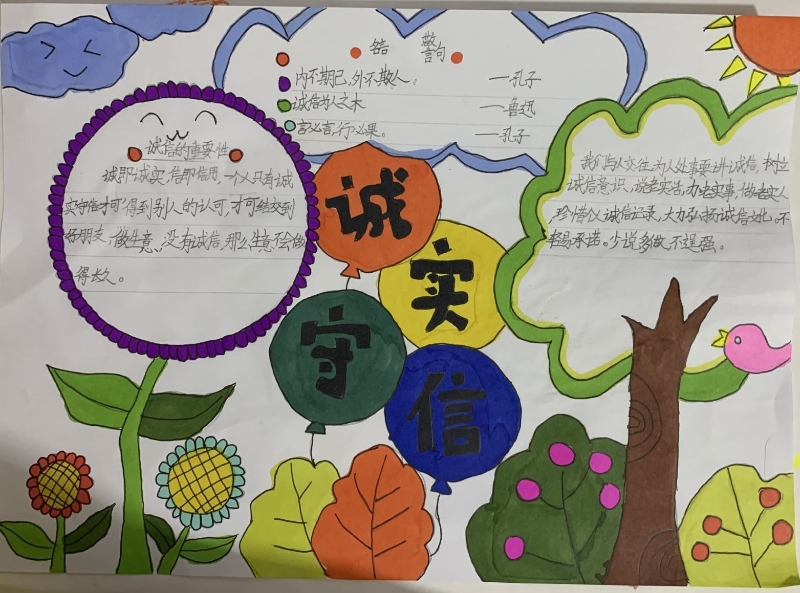 警句
内不欺己,外不欺人。 ——孔子
诚信为人之本 ——鲁迅
言必言,行必果。 ——孔子
诚信的重要性
诚即诚实,信即信用,一个人只有诚
实守信才可得到别人的认可,才可结交到
好朋友,做生意,没有诚信,那么生意不会做
得长久。
诚
实
守
信
我们与人交往,为人处事要讲诚信,树立
诚信意识,说老实话,办老实事,做老实人
珍惜诚信记录,大力弘扬诚信文化。不
轻易承诺。少说多做,不逞强。